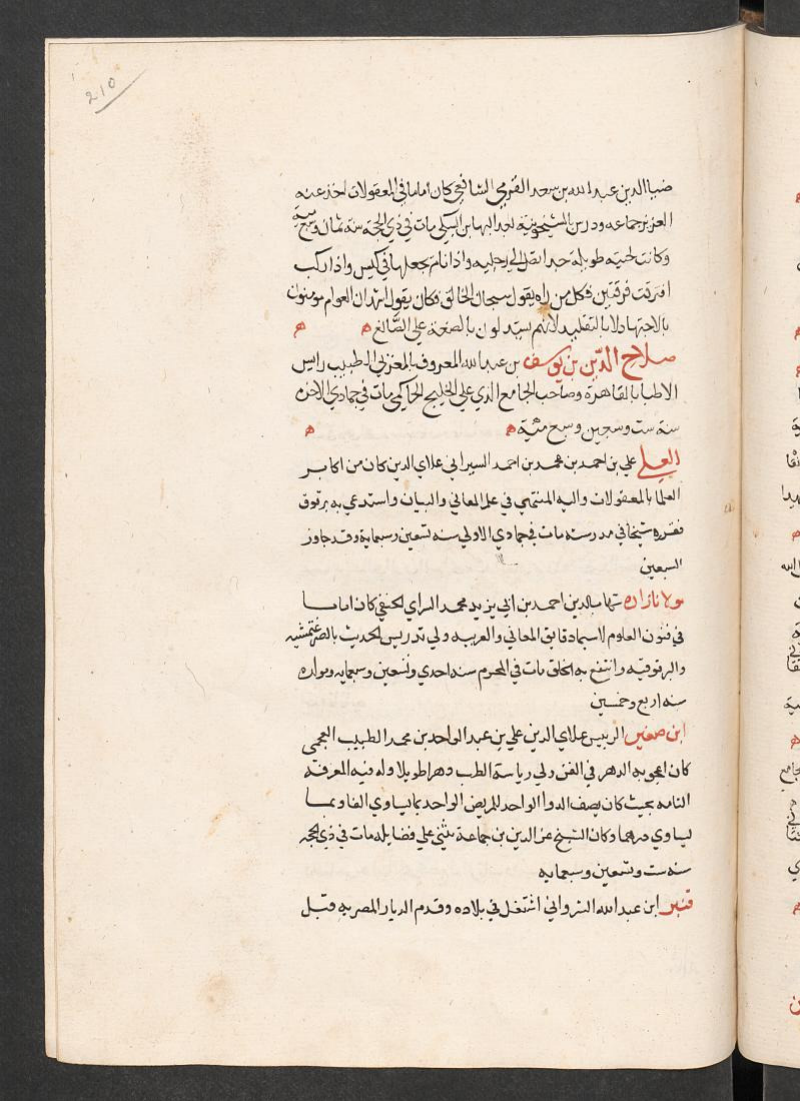 210
ضيا الدين عبد الله بن سعد القرمي الشافعي كان اماما في المعقولات اخذ عنه
العز بن جماعه ودرس بالشيخونية بعد البها بن السبكي مات في ذي الحجه سنة ثمان وسبعين
وكانت لحيته طويله جدا تصل الي رجليه واذا نام يجعلها في كيس واذا ركب
افترقت فرقتين فكل من راه يقول سبحان الخالق فكان يقول اشهد ان العوام مومنون
بالاجتهاد لا بالتقليد لانهم يستدلون بالصنعة علي الصانع ه ه
صلاح الدين بن يوسف بن عبد الله المعروف بالمغربي الطبيب رايس
الاطبا بالقاهرة وصاحب الجامع الذي علي الخليج الحاكمي مات في جمادي الاخره
سنة ست وسبعين وسبع مئية ه ه
العلي علي بن احمد بن محمد بن احمد السيرافي علاي الدين كان من اكابر
العلما بالمعقولات واليه المنتهي في علم المعاني والبيان واستدعي به برقوق
فقرره شيخا في مدرسته مات في جمادي الاولي سنه تسعين وسبعماية وقد جاوز
السبعين
مولانا زاده شهاب الدين احمد بن ابي يزيد محمد السراي الحنفي كان اماما
في فنون العلوم لا سيما دقايق المعاني والعربيه ولي تدريس الحديث بالصرغتمشيه
والبرقوقيه وانتفع به الخلق مات في المحرم سنه احدي وتسعين وسبعمايه ومولده
سنه اربع وخمسين
ابن صغير الرييس علاي الدين علي بن عبد الواحد بن محمد الطبيب العجمي
كان اعجوبه الدهر في الفن ولي رياسة الطب دهرا طويلا وله فيه المعرفه
التامه بحيث كان يصف الدوا الواحد للمريض الواحد بما يساوي الفا وبما
يساوي درهما وكان الشيخ عز الدين بن جماعة يثني علي فضايله مات في ذي الحجه
سنه ست وتسعين وسبعمايه
قنبر ابن عبد الله الشرواني اشتغل في بلاده وقدم الديار المصريه قبل